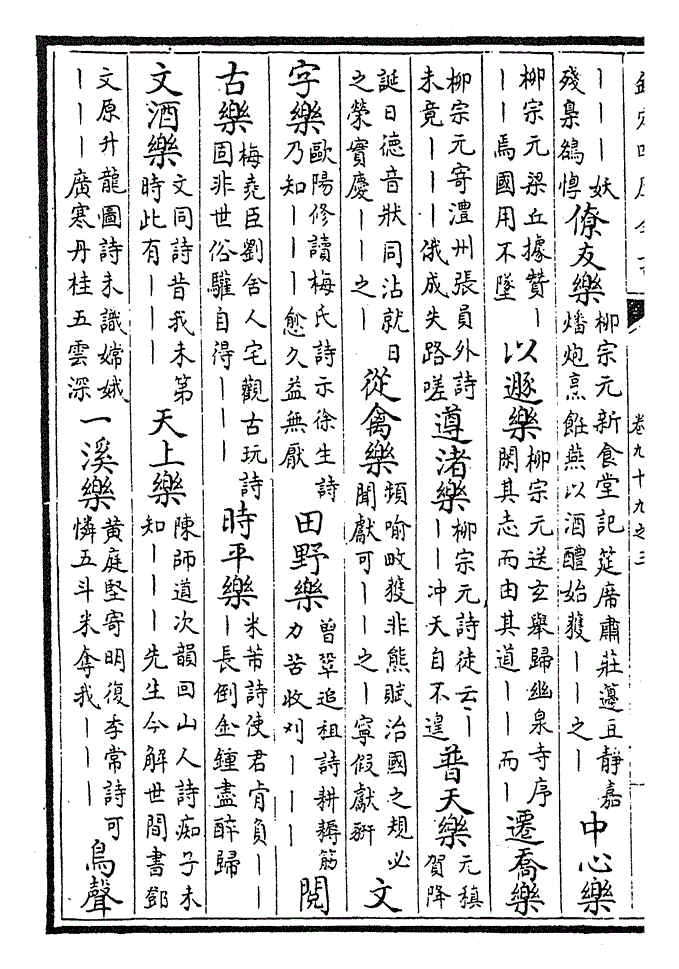 欽定四庫全書
卷九十九之三
｜｜｜妖
殘梟鵒慱
僚友樂
柳宗元新食堂記筵席肅莊籩豆靜嘉
燔炮烹飪燕以酒醴始獲｜｜之｜
中心樂
柳宗元梁丘據贊｜
｜｜焉國用不墜
以遯樂
柳宗元送玄舉歸幽泉寺序
閑其志而由其道｜｜而｜
遷喬樂
柳宗元寄澧州張員外詩
未竟｜｜｜俄成失路嗟
遵渚樂
柳宗元詩徒云｜
｜｜冲天自不遑
普天樂
元稹
賀降
誕日德音狀同沾就日
之榮實慶｜｜之｜
從禽樂
頻喻畋獲非熊賦治國之規必
聞獻可｜｜之｜寧假獻豜
文
字樂
歐陽修讀梅氏詩示徐生詩
乃知｜｜｜愈久益無厭
田野樂
曾鞏追祖詩耕耨筋
力苦收刈｜｜｜
閱
古樂
梅堯臣劉舍人宅觀古玩詩
固非世俗驩自得｜｜｜
時平樂
米芾詩使君肯負｜｜
｜長倒金鍾盡醉歸
文酒樂
文同詩昔我未第
時此有｜｜｜
天上樂
陳師道次韻回山人詩痴子未
知｜｜｜先生今解世間書鄧
文原升龍圖詩未識嫦娥
｜｜｜廣寒丹桂五雲深
一溪樂
黃庭堅寄明復季常詩可
憐五斗米奪我｜｜｜
鳥聲